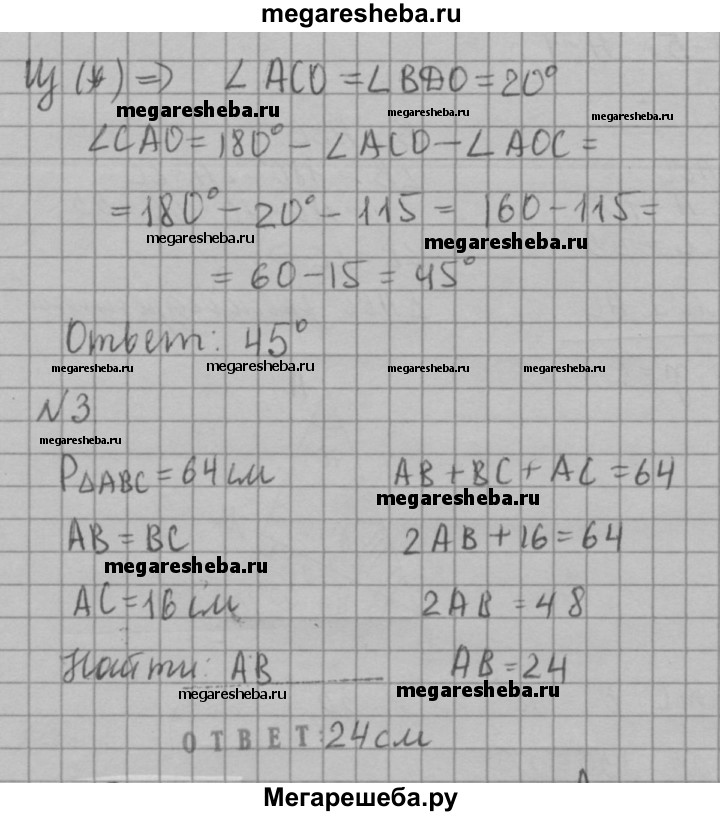 megaresheba.ru
Из (*) => ∠ACO = ∠BDO = 20°
megaresheba.ru megaresheba.ru megaresheba.ru
∠CAO = 180° - ∠ACO - ∠AOC =
= 180° - 20° - 115 = 160 - 115 =
megaresheba.ru megaresheba.ru
= 60 - 15 = 45°
Ответ: 45°
megaresheba.ru megaresheba.ru megaresheba.ru megaresheba.ru
N3
megaresheba.ru
P△ABC = 64 см AB + BC + AC = 64
megaresheba.ru
AB = BC 2AB + 16 = 64
megaresheba.ru
AC = 16 см 2AB = 48
Найти: AB AB = 24
megaresheba.ru megaresheba.ru
ОТВЕТ: 24 см
Мегарешеба.ру